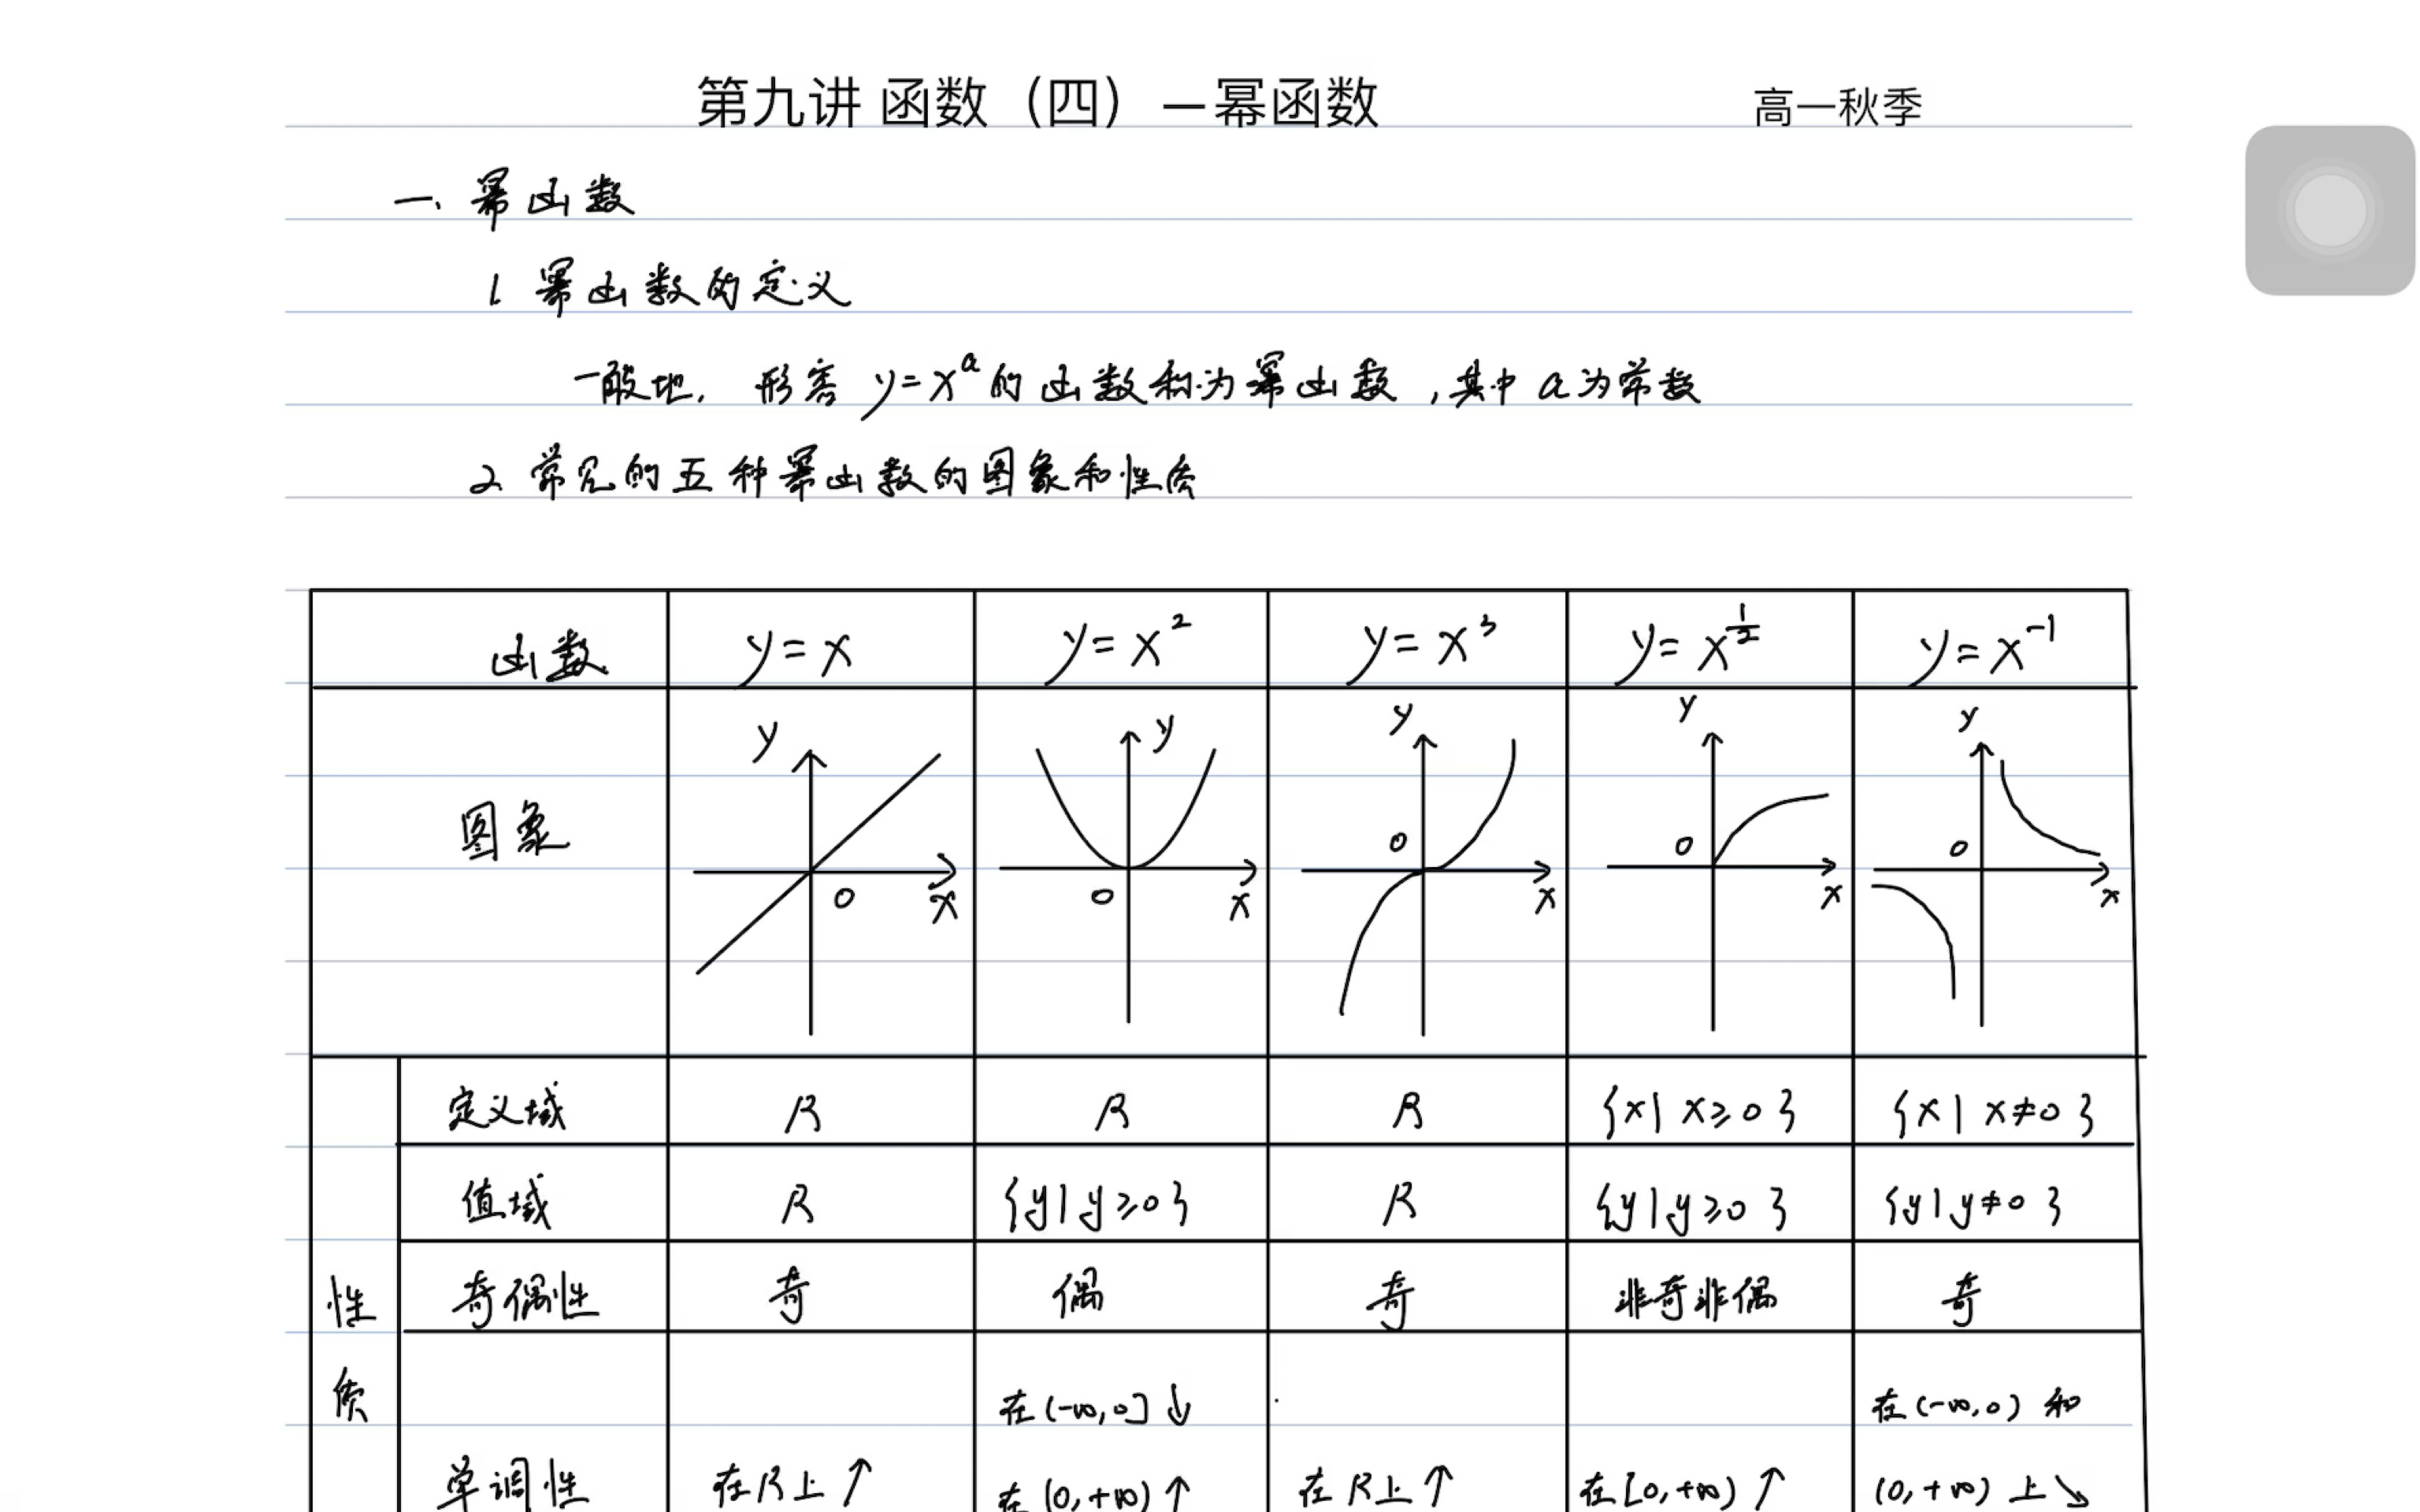 第九讲 函数（四）—幂函数 高一秋季
一、幂函数
1. 幂函数的定义
一般地，形容 y=x^a 的函数称为幂函数，其中 a 为常数
2. 常见的五种幂函数的图象和性质
函数 y=x y=x² y=x³ y=x^{1/2} y=x^{-1}
图象 y 0 x y 0 x y 0 x y 0 x y 0 x
性质
定义域 R R R {x| x≥0} {x| x≠0}
值域 R {y|y≥0} R {y|y≥0} {y|y≠0}
奇偶性 奇 偶 奇 非奇非偶 奇
单调性 在R上↑ 在(-∞,0]↓ 在(0,+∞)↑ 在R上↑ 在[0,+∞)↑ 在(-∞,0) 和 (0,+∞) 上↘